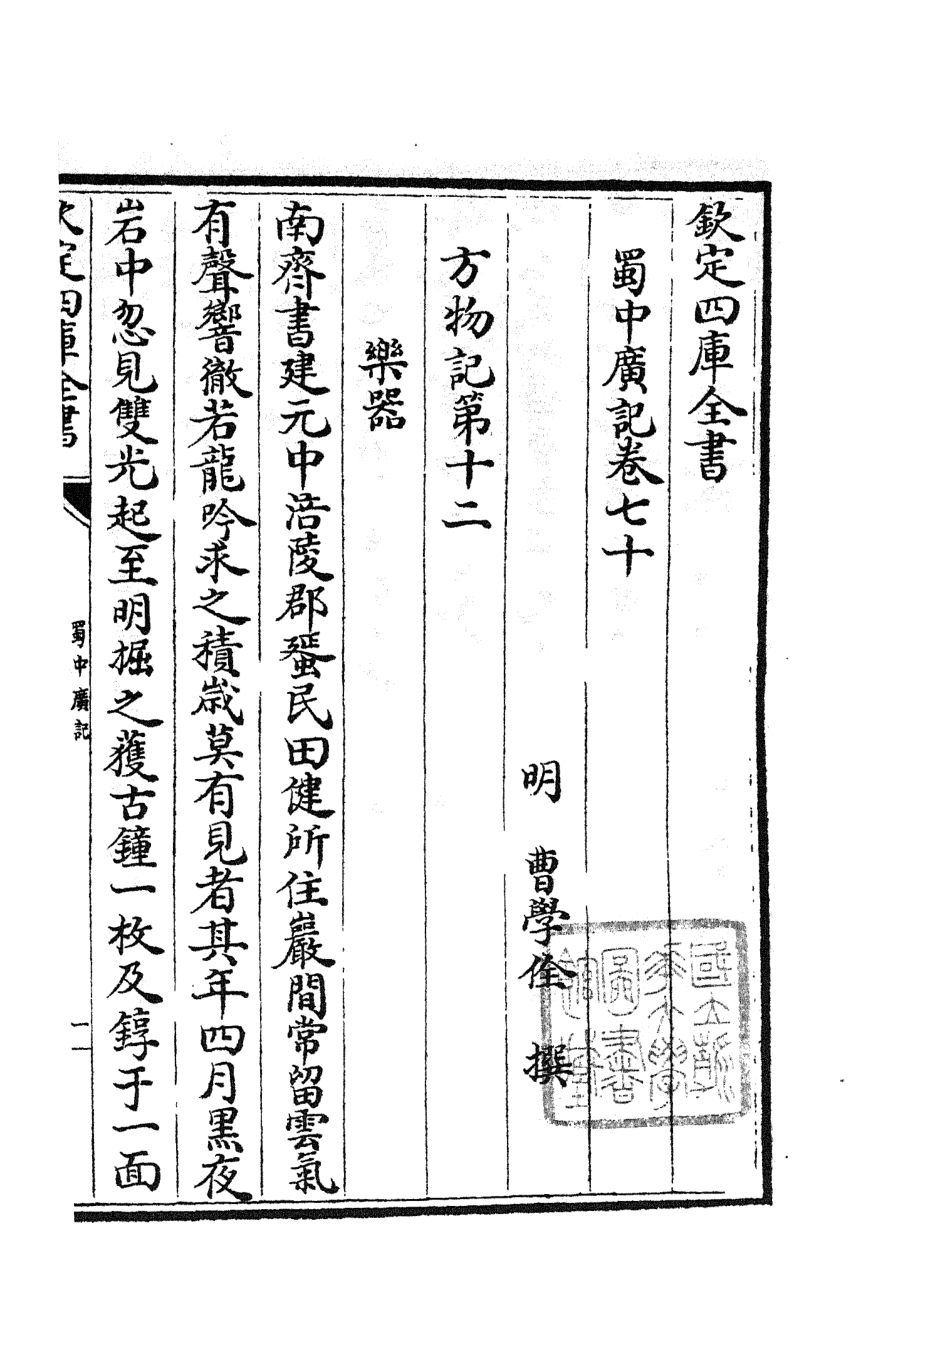 欽定四庫全書
蜀中廣記卷七十
明 曹學佺 撰
方物記第十二
樂器
南齊書建元中涪陵郡蜑民田健所住巖間常留雲氣
有聲響徹若龍吟求之積歳莫有見者其年四月黒夜
岩中忽見雙光起至明掘之獲古鐘一枚及錞于一面
欽定四庫全書
蜀中廣記
國立浙
江大學
圖書
館藏